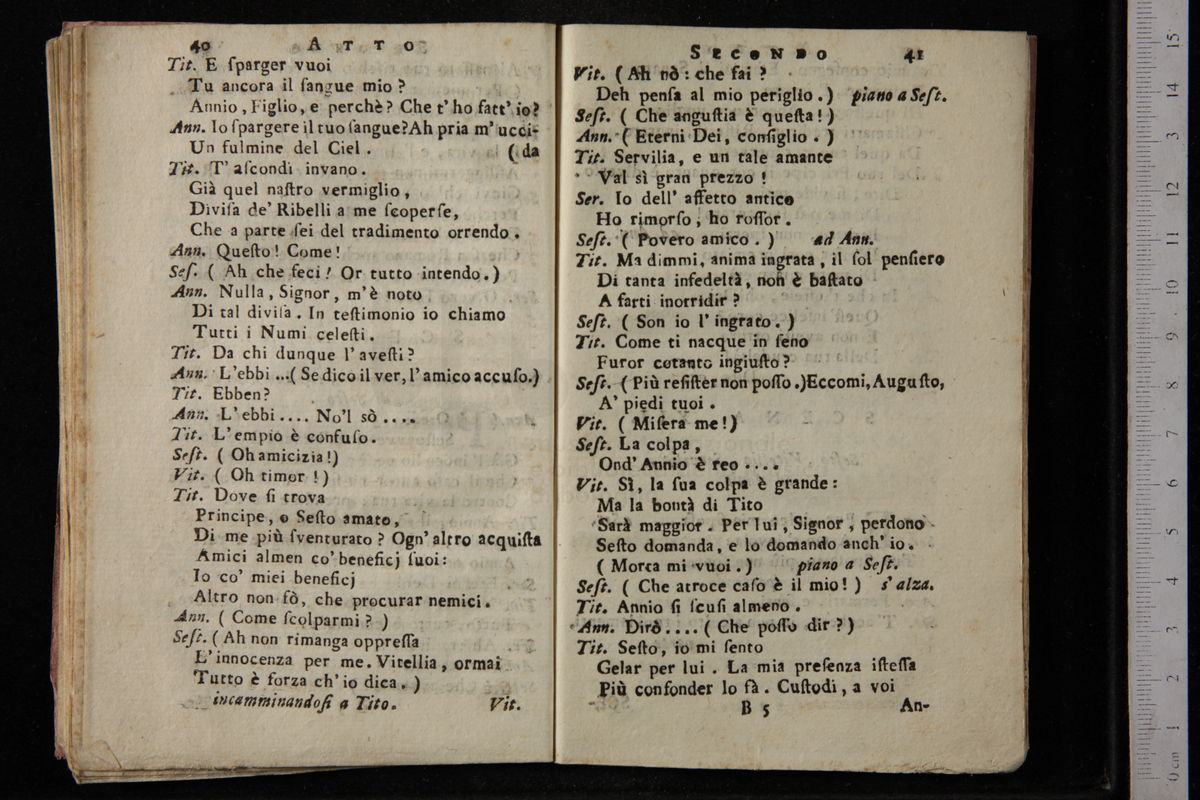 40 ATTO
Tit. E ſparger vuoi
Tu ancora il ſangue mio?
Annio, Figlio, e perchè? Che t' ho fatt' io?
Ann. Io ſpargere il tuo ſangue? Ah pria m' ucci-
Un fulmine del Ciel. (da
Tit. T' aſcondi invano.
Già quel naſtro vermiglio,
Diviſa de' Ribelli a me ſcoperſe,
Che a parte ſei del tradimento orrendo.
Ann. Queſto! Come!
Seſ. (Ah che feci! Or tutto intendo.)
Ann. Nulla, Signor, m' è noto
Di tal diviſa. In teſtimonio io chiamo
Tutti i Numi celeſti.
Tit. Da chi dunque l' aveſti?
Ann. L' ebbi ...(Se dico il ver, l' amico accuſo.)
Tit. Ebben?
Ann. L' ebbi.... No'l sò....
Tit. L' empio è confuſo.
Seſt. (Oh amicizia!)
Vit. (Oh timor!)
Tit. Dove ſi trova
Principe, o Seſto amato,
Di me più ſventurato? Ogn' altro acquiſta
Amici almen co' beneficj ſuoi:
Io co' miei beneficj
Altro non fò, che procurar nemici.
Ann. (Come ſcolparmi?)
Seſt. (Ah non rimanga oppreſſa
L' innocenza per me. Vitellia, ormai
Tutto è forza ch' io dica.)
incamminandoſi a Tito. Vit.
SECONDO 41
Vit. (Ah nò: che fai?
Deh penſa al mio periglio.) piano a Seſt.
Seſt. (Che anguſtia è queſta!)
Ann. (Eterni Dei, conſiglio.)
Tit. Servilia, e un tale amante
Val sì gran prezzo!
Ser. Io dell' affetto antico
Ho rimorſo, ho roſſor.
Seſt. (Povero amico.) ad Ann.
Tit. Ma dimmi, anima ingrata, il ſol penſiero
Di tanta infedeltà, non è baſtato
A farti inorridir?
Seſt. (Son io l' ingrato.)
Tit. Come ti nacque in ſeno
Furor cotanto ingiuſto?
Seſt. (Più reſiſter non poſſo.) Eccomi, Auguſto,
A' piedi tuoi.
Vit. (Miſera me!)
Seſt. La colpa,
Ond' Annio è reo....
Vit. Sì, la ſua colpa è grande:
Ma la bontà di Tito
Sarà maggior. Per lui, Signor, perdono
Seſto domanda, e lo domando anch' io.
(Morta mi vuoi.) piano a Seſt.
Seſt. (Che atroce caſo è il mio!) s' alza.
Tit. Annio ſi ſcuſi almeno.
Ann. Dirò.... (Che poſſo dir?)
Tit. Seſto, io mi ſento
Gelar per lui. La mia preſenza iſteſſa
Più confonder lo fà. Cuſtodi, a voi
B 5 An-